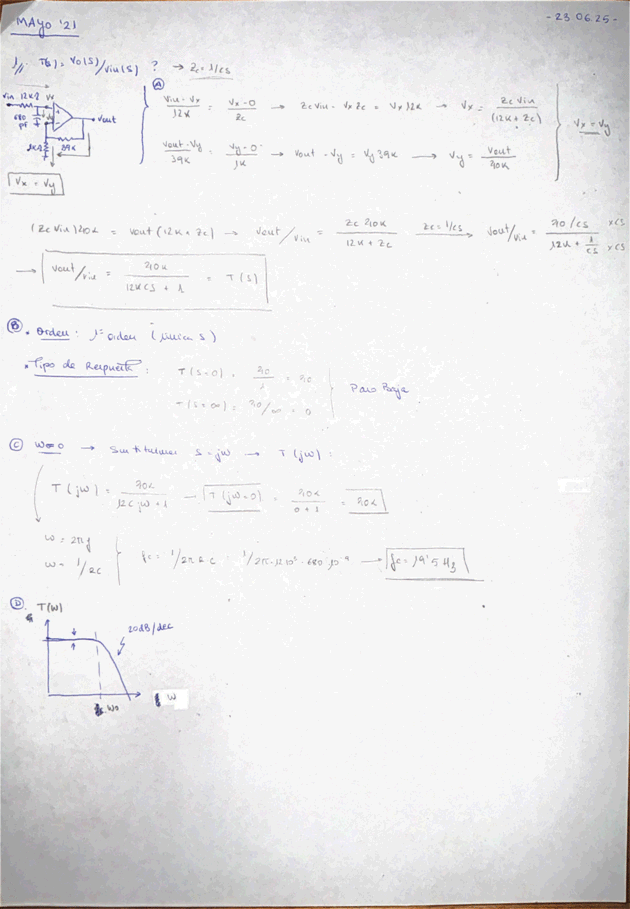 MAYO '21
- 23.06.25 -
1// T(s) = Vo(s)/Vin(s) ? → Zc = 1/cs
Vin 12kΩ Vx
680 pF
Vy
Vout
1kΩ 39k
Vx = Vy
A
Vin - Vx / 12k = Vx - 0 / Zc → Zc Vin - Vx Zc = Vx 12k → Vx = Zc Vin / (12k + Zc)
Vout - Vy / 39k = Vy - 0 / 1k → Vout - Vy = Vy 39k → Vy = Vout / 40k
Vx = Vy
(Zc Vin) 40k = Vout (12k + Zc) → Vout/Vin = Zc 40k / 12k + Zc Zc = 1/cs → Vout/Vin = 40/cs / 12k + 1/cs xcs xcs
→ Vout/Vin = 40k / 12kcs + 1 = T(s)
B • Orden: 1er orden (única s)
• Tipo de Respuesta: T(s=0) = 40/1 = 40
T(s=∞) = 40/∞ = 0
Paso Baja
C W=0 → Sustituimos s=jw → T(jw):
T(jw) = 40k / 12c jw + 1 → T(jw=0) = 40k / 0+1 = 40k
w = 2πf
w = 1/2c
fc = 1/2π R C = 1/2π·12·10³·680·10⁻⁹ → fc = 19'5 Hz
D T(w)
20dB/dec
w0
w